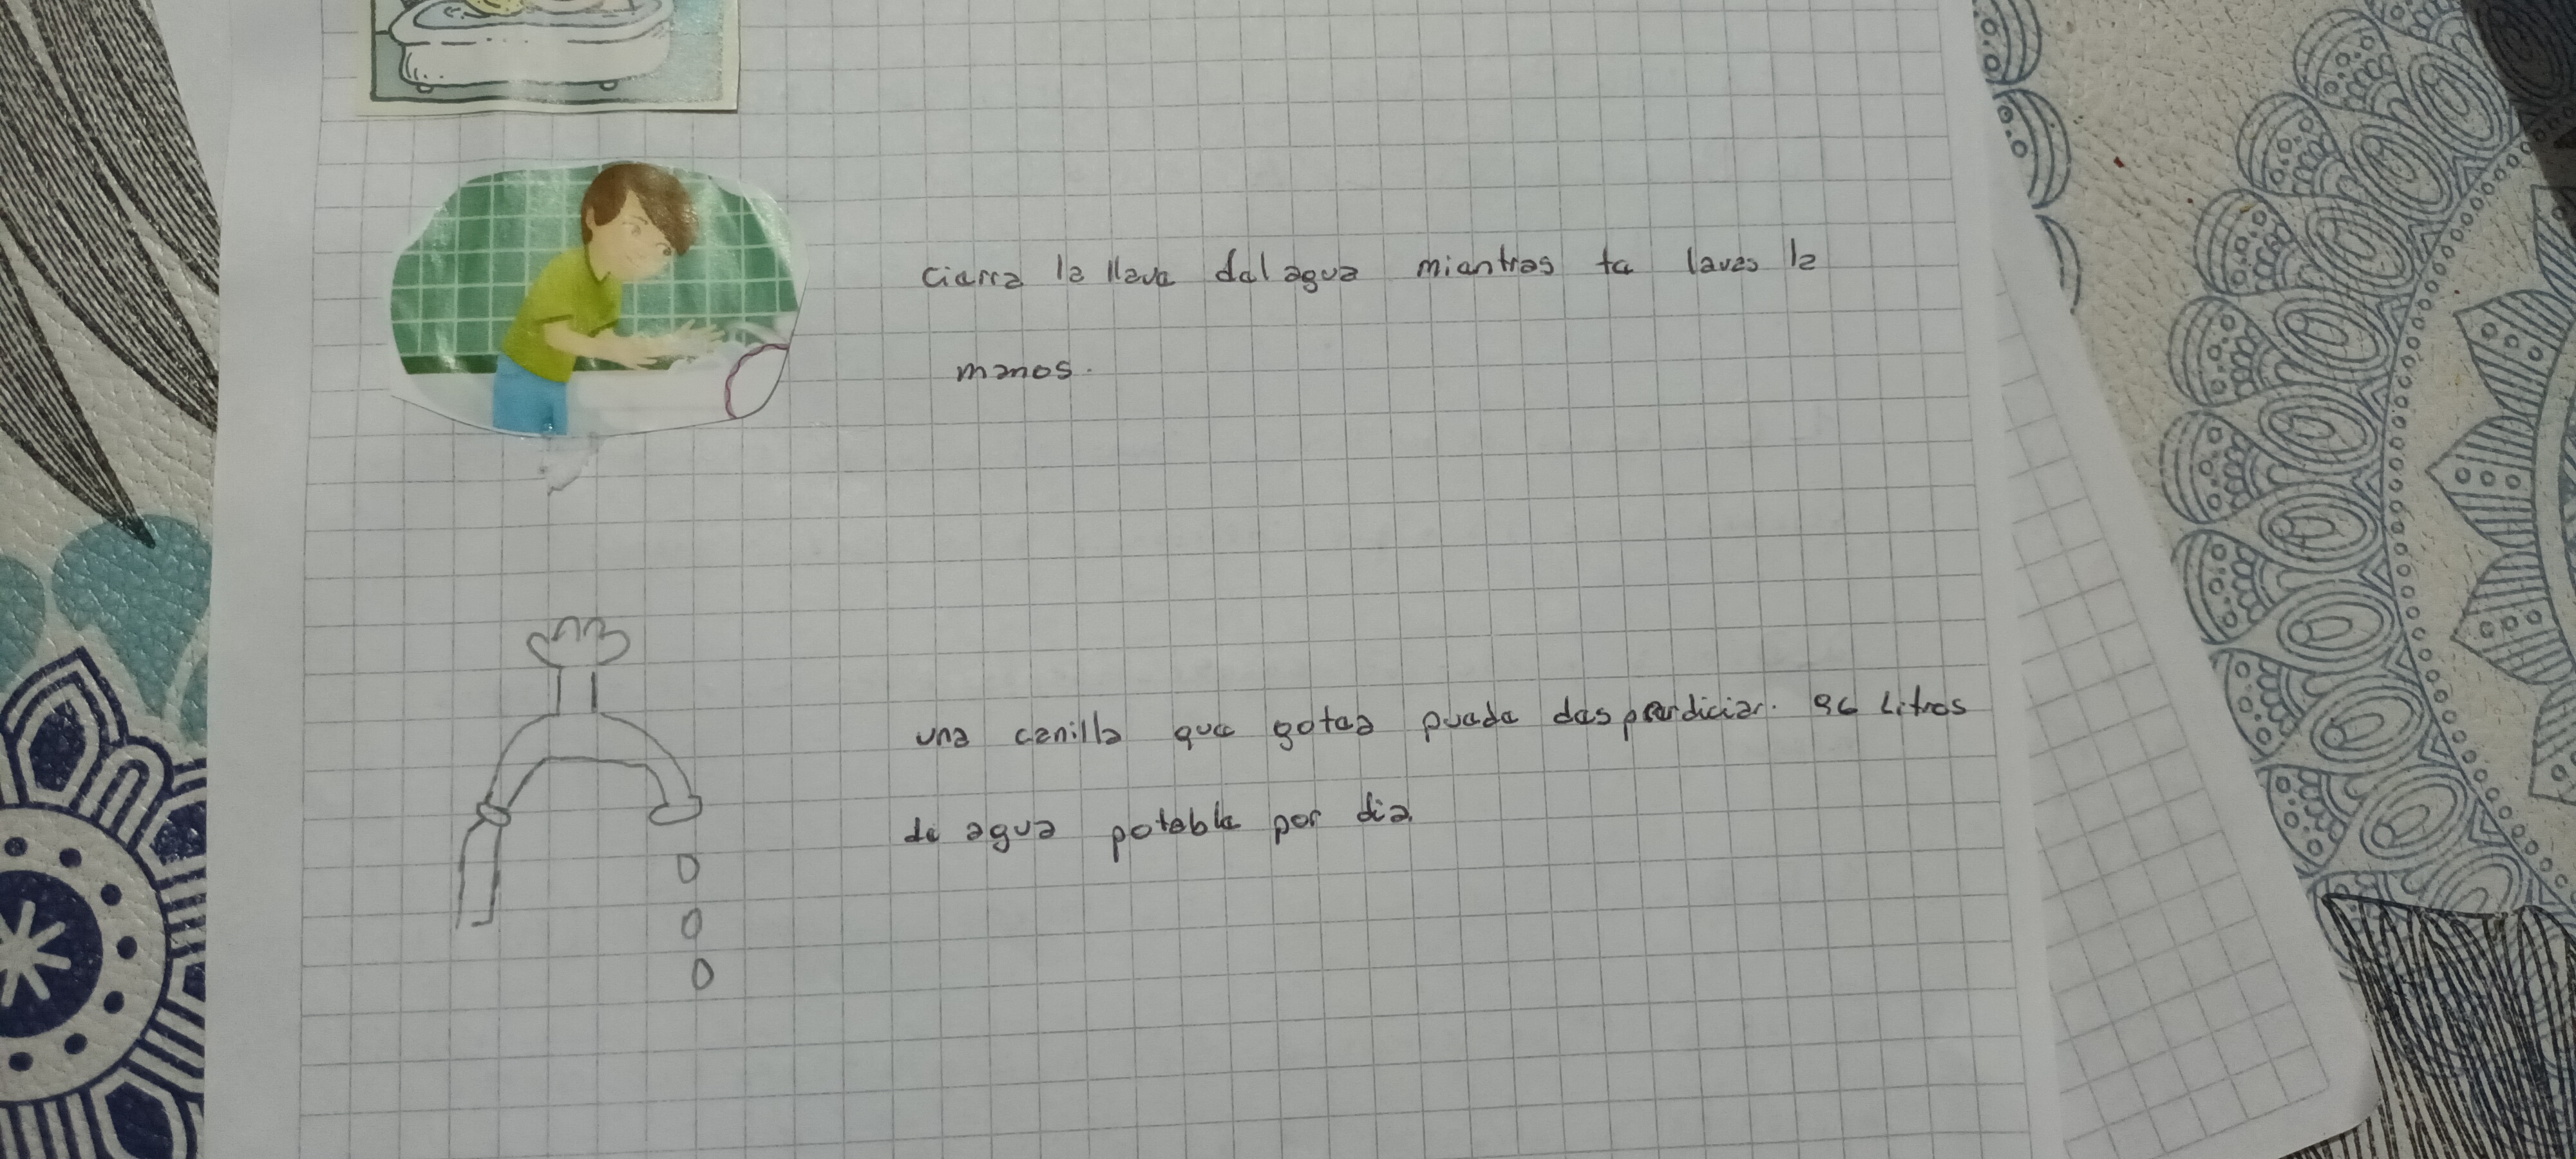 cierra la llave del agua mientras te lavas la
manos.
una canilla que gotea puede desperdiciar. 96 Litros
de agua potable por dia.